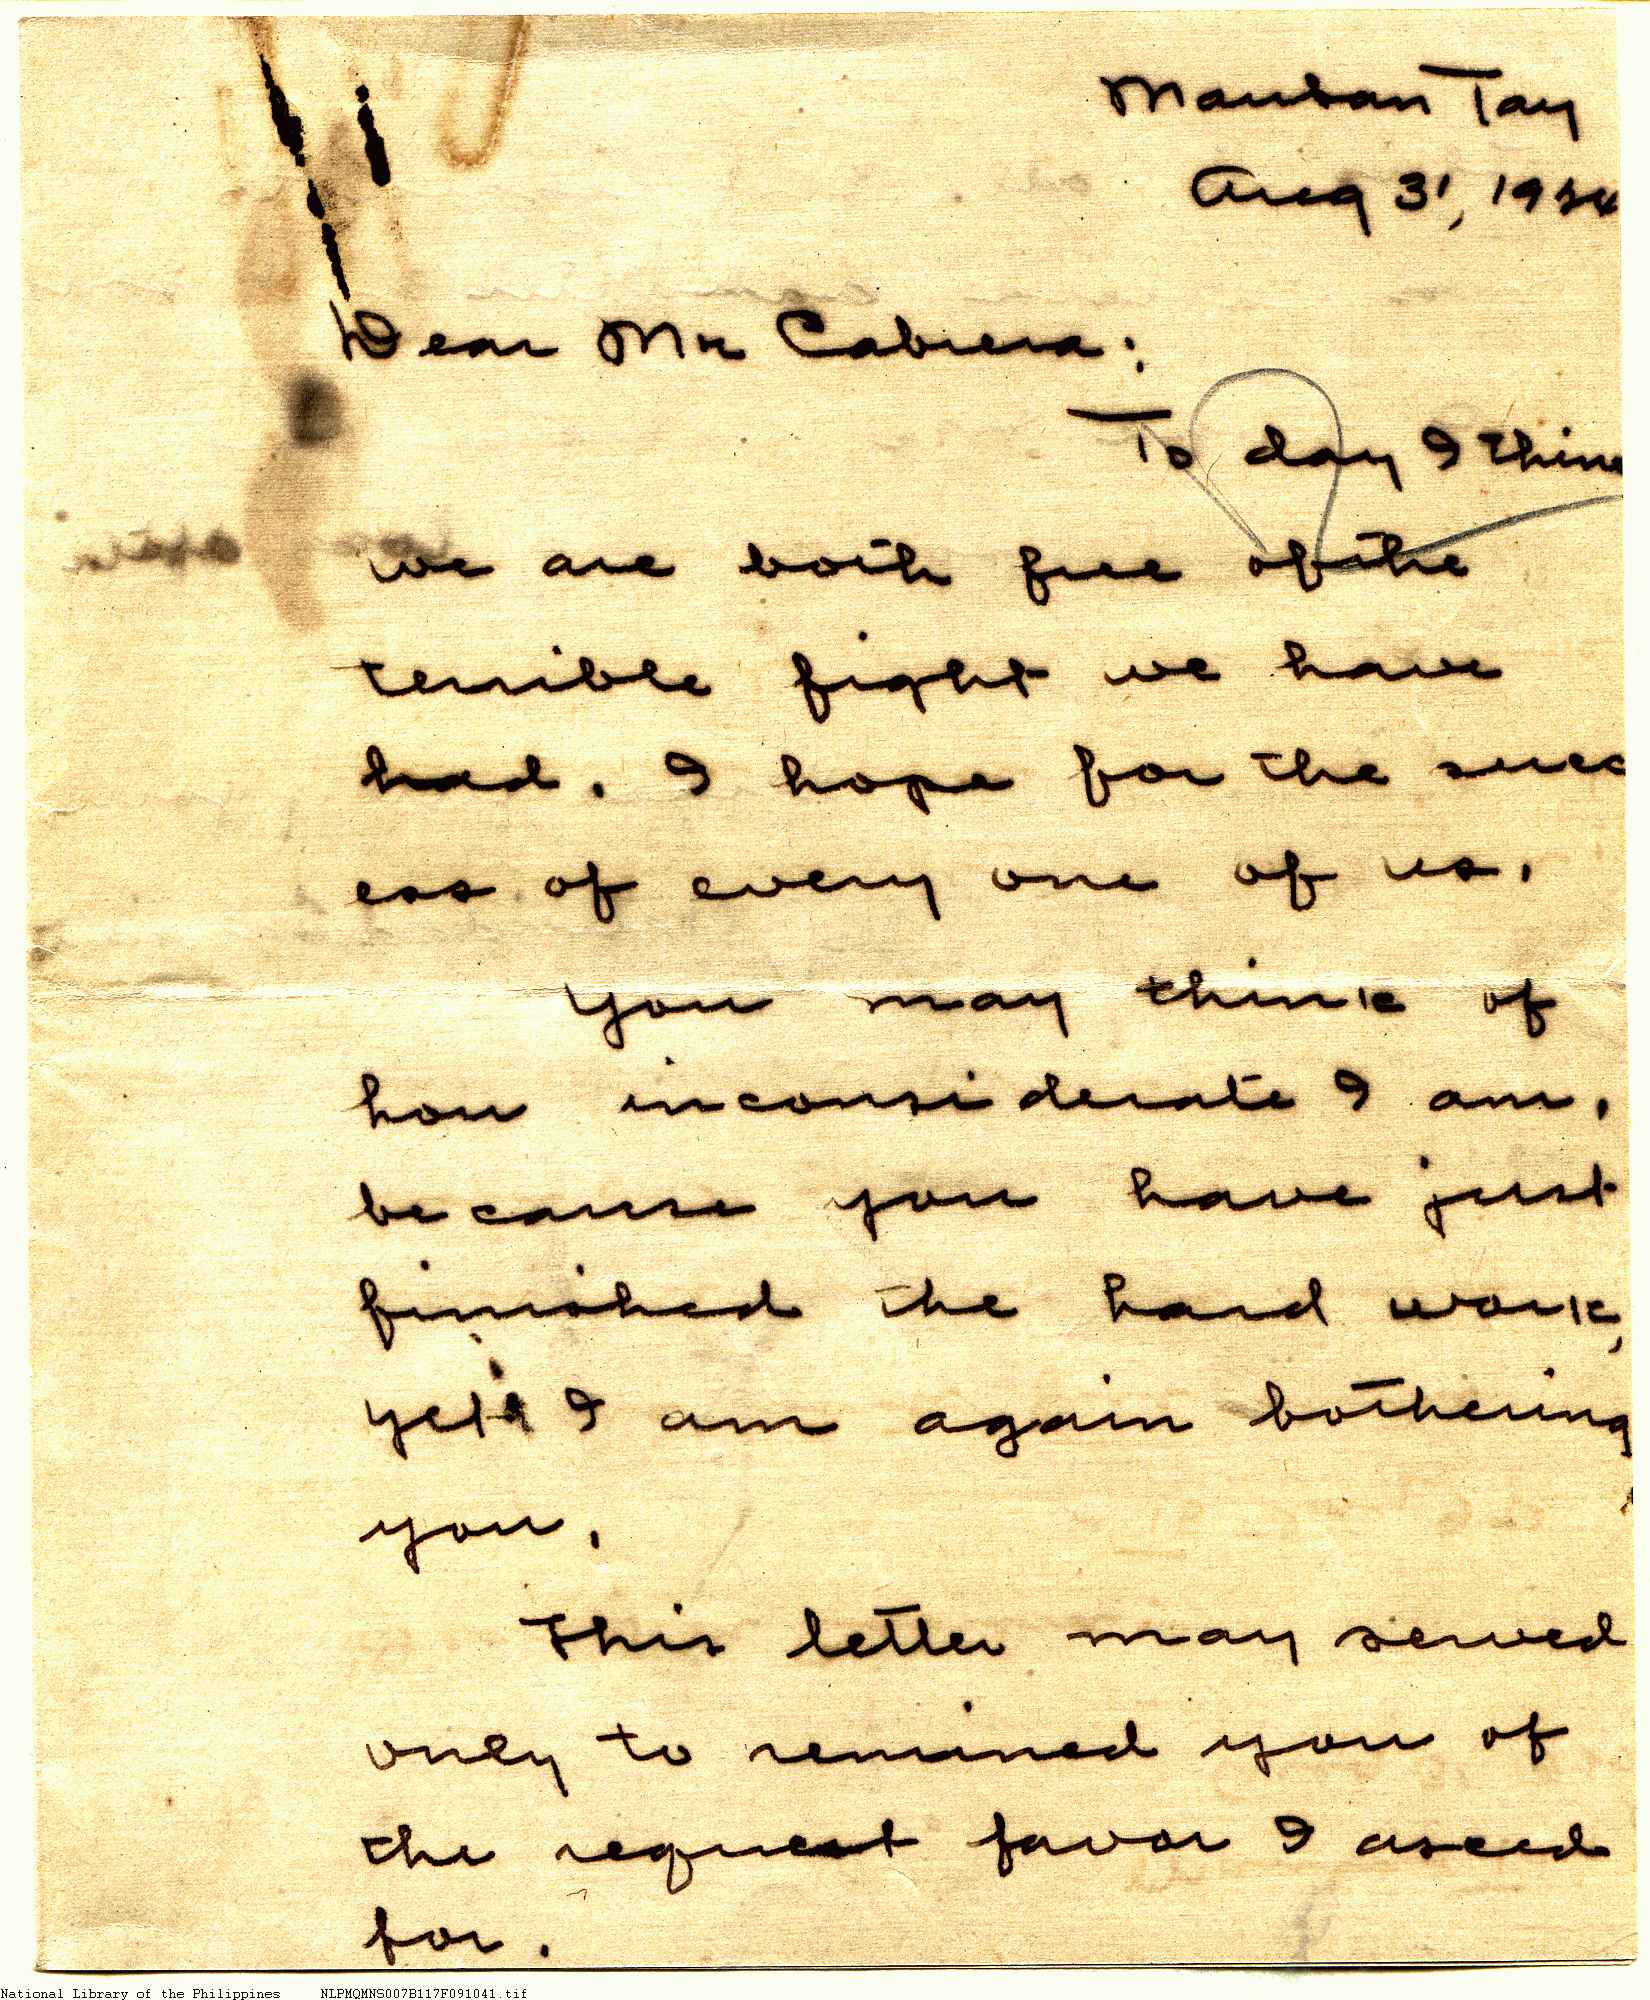 Mauban Tay
Aug 31, 1934
Dear Mr Cabrera:
To day I think
we are both free of the
terrible fight we have
had. I hope for the succ
ess of every one of us.
You may think of
how inconsiderate I am,
because you have just
finished the hard work,
yet I am again bothering
you.
This letter may served
only to remined you of
the request favor I asced
for.
National Library of the Philippines NLPMQMNS007B117F091041.tif